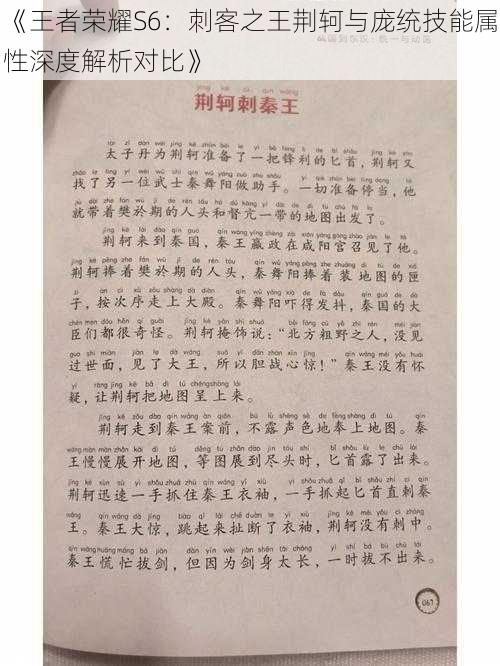 《王者荣耀S6：刺客之王荆轲与庞统技能属
性深度解析对比》
荆轲刺秦王
太子丹为荆轲准备了一把锋利的匕首，荆轲又
找了另一位武士秦舞阳做助手。一切准备停当，他
就带着樊於期的人头和督亢一带的地图出发了。
荆轲来到秦国，秦王嬴政在咸阳宫召见了他。
荆轲捧着樊於期的人头，秦舞阳捧着装地图的匣
子，按次序走上大殿。秦舞阳吓得发抖，秦国的大
臣们都很奇怪。荆轲掩饰说：“北方粗野之人，没见
过世面，见了大王，所以胆战心惊！”秦王没有怀
疑，让荆轲把地图呈上来。
荆轲走到秦王案前，不露声色地奉上地图。秦
王慢慢展开地图，等图展到尽头时，匕首露了出来。
荆轲迅速一手抓住秦王衣袖，一手抓起匕首直刺秦
王。秦王大惊，跳起来扯断了衣袖，荆轲没有刺中。
秦王慌忙拔剑，但因为剑身太长，一时拔不出来。
067